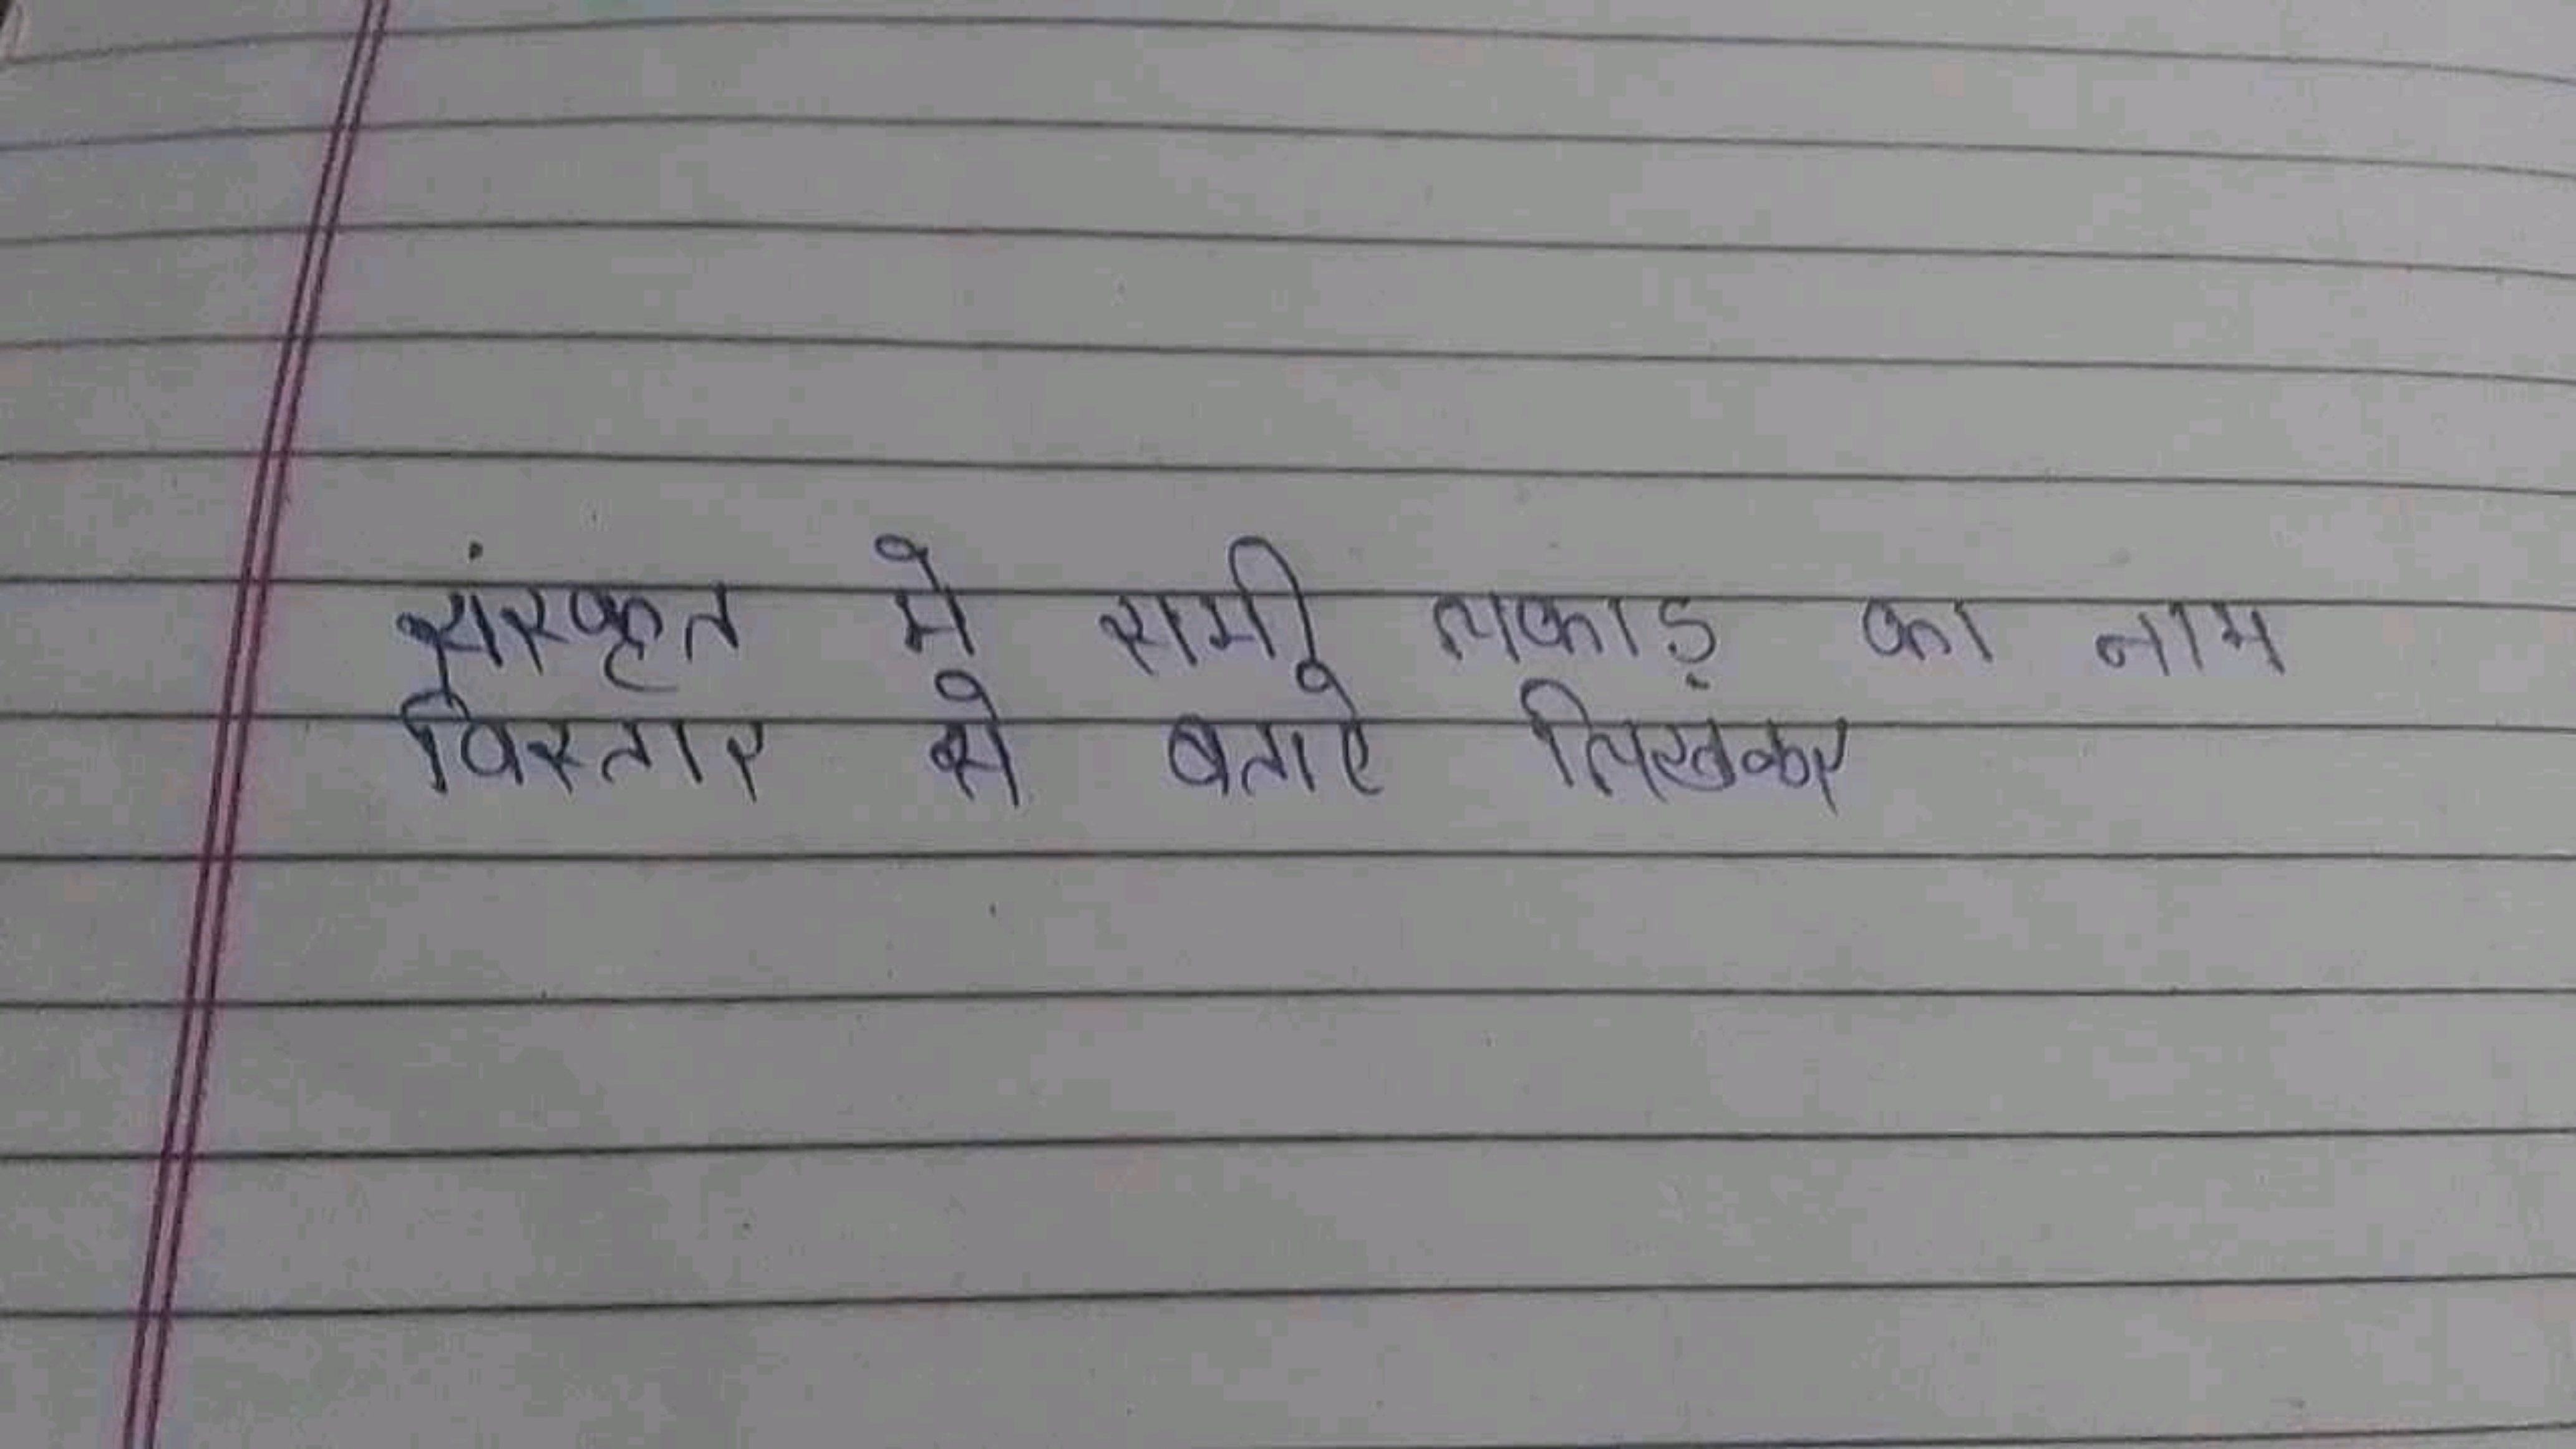 संस्कृत मे सभी लकाड़ का नाम
विस्तार से बताऐ लिखकर